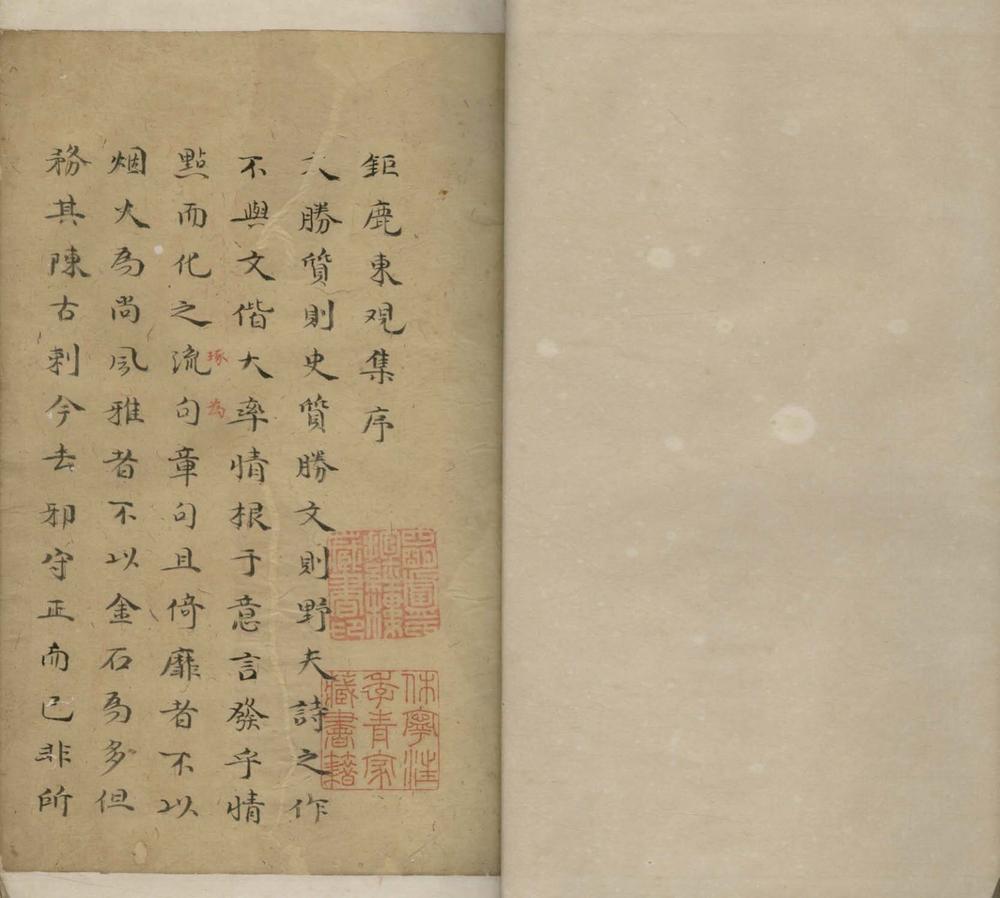 鉅鹿東观集序
文勝質則史質勝文則野夫詩之作
不與文偕大率情根于意言發乎情
點而化之流句章句且倚靡者不以
琢為
烟火為尚風雅者不以金石為多但
務其陳古刺今去邪守正而已非所
藏書印
休寧汪
季青家
藏書籍